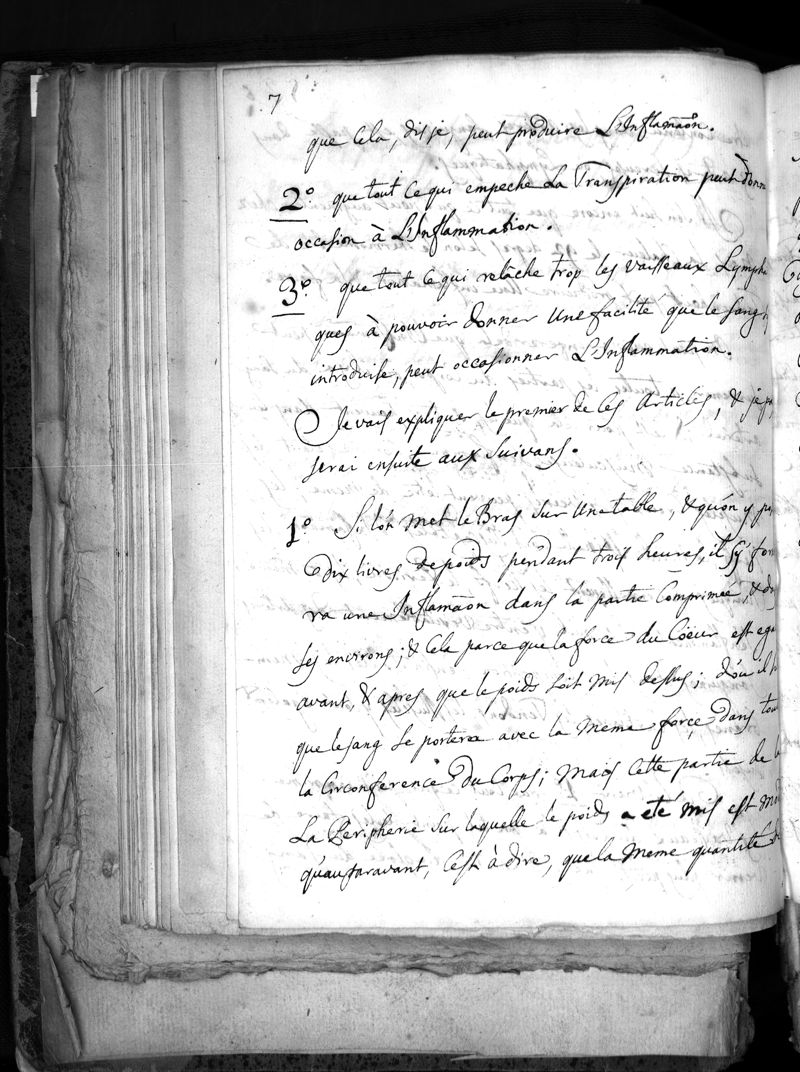 7
que Cela, dis je, peut produire L'Inflamãõn.
2.º que tout Ce qui empeche La Transpiration peut donn
occasion à L'Inflammation.
3.º que tout Ce qui relâche trop les vaisseaux Lympha
ques à pouvoir donner Une facilité que le Sang s'
introduise, peut occasionner L'Inflammation.
Je vais expliquer le premier de Ces Articles, & je pa
serai ensuite aux Suivans.
1.º Si l'on met le Bras sur Une table, & qu'on y pu
dix livres de poids pendant trois heures, il s'y for
ra une Inflamãõn dans la partie Comprimée, & da
ses environs; & Cela parce que la force du Cœur est ega
avant, & apres que le poids soit mis dessus; d'ou il s
que le sang se portera avec la meme force dans tou
la Circonference du Corps; Mais Cette partie de
La Peripherie sur laquelle le poids a eté mis est
qu'auparavant, C'est à dire, que la Meme quantité